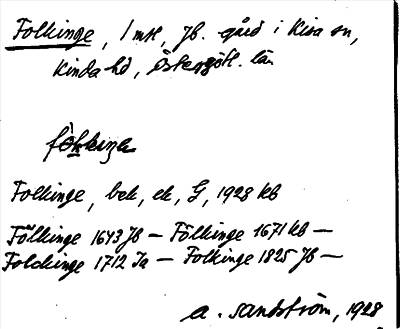 Folkinge, 1 mtl, Jb. gård i Kisa sn,
Kinda hd, Östergötl. län
Folkinge, bek, ek, G, 1928 kb
Fölkinge 1643 Jb – Fölkinge 1671 kb –
Folckinge 1712 Ja – Folkinge 1825 Jb –
A. Sandström, 1928